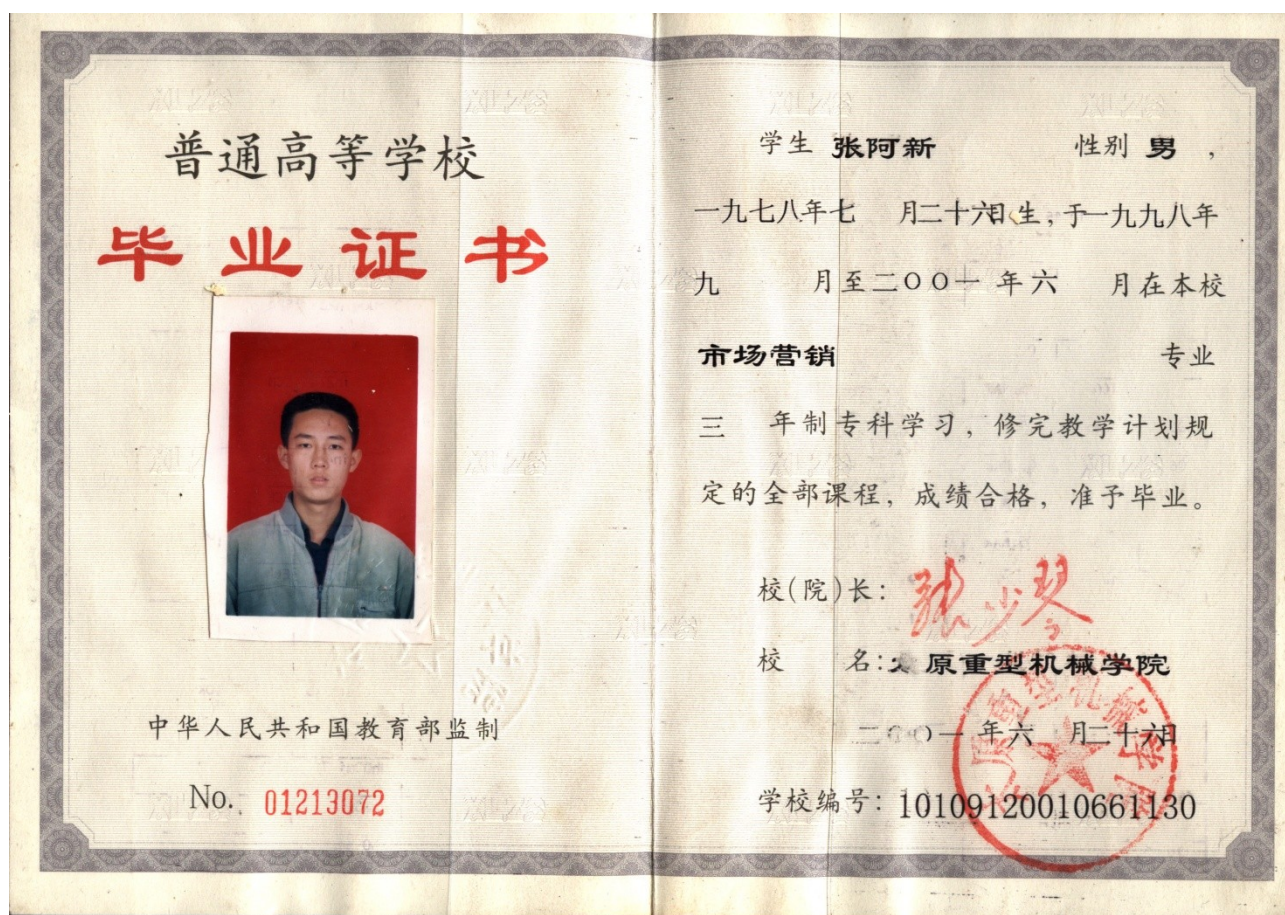 普通高等学校
毕业证书
中华人民共和国教育部监制
No. 01213072
学生 张阿新 性别 男，
一九七八年七 月二十六日生，于一九九八年
九 月至二〇〇一年六 月在本校
市场营销 专业
三 年制专科学习，修完教学计划规
定的全部课程，成绩合格，准予毕业。
校(院)长：张少琴
校 名：太原重型机械学院
二〇〇一年六 月二十六日
学校编号：10109120010661130
太原重型机械学院